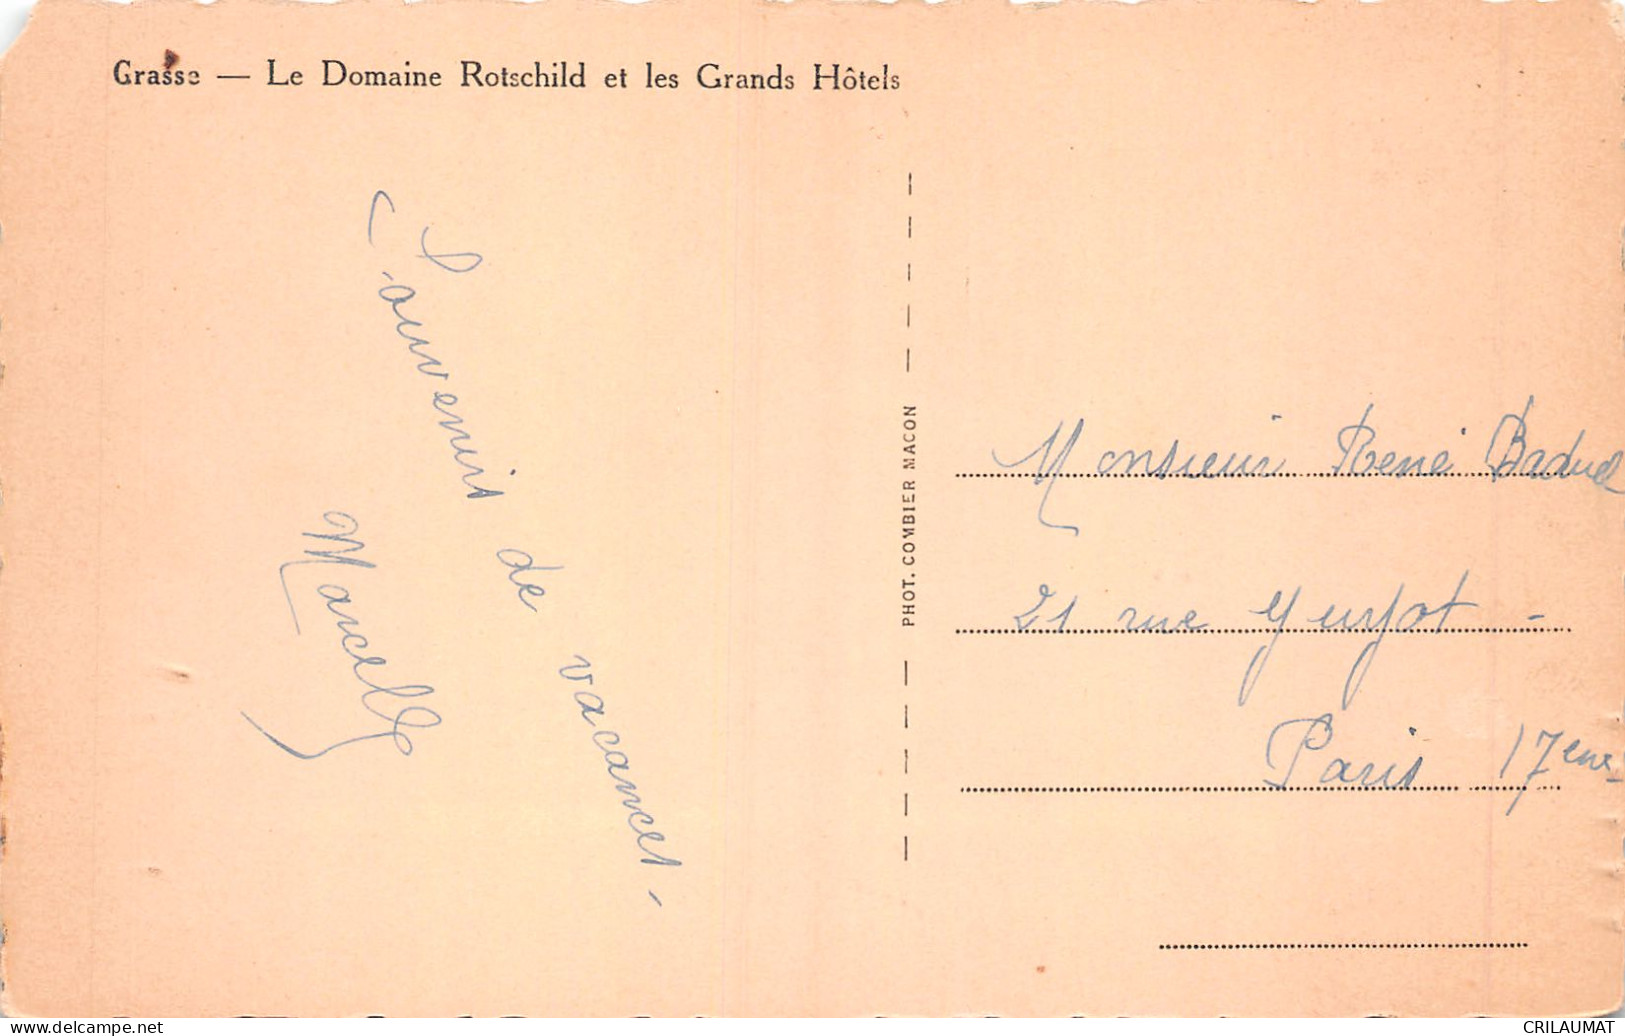 Grasse — Le Domaine Rotschild et les Grands Hôtels
Souvenirs de vacances -
Marcelle
PHOT. COMBIER MACON
Monsieur René
21 rue -
Paris 17eme
www.delcampe.net
CRILAUMAT